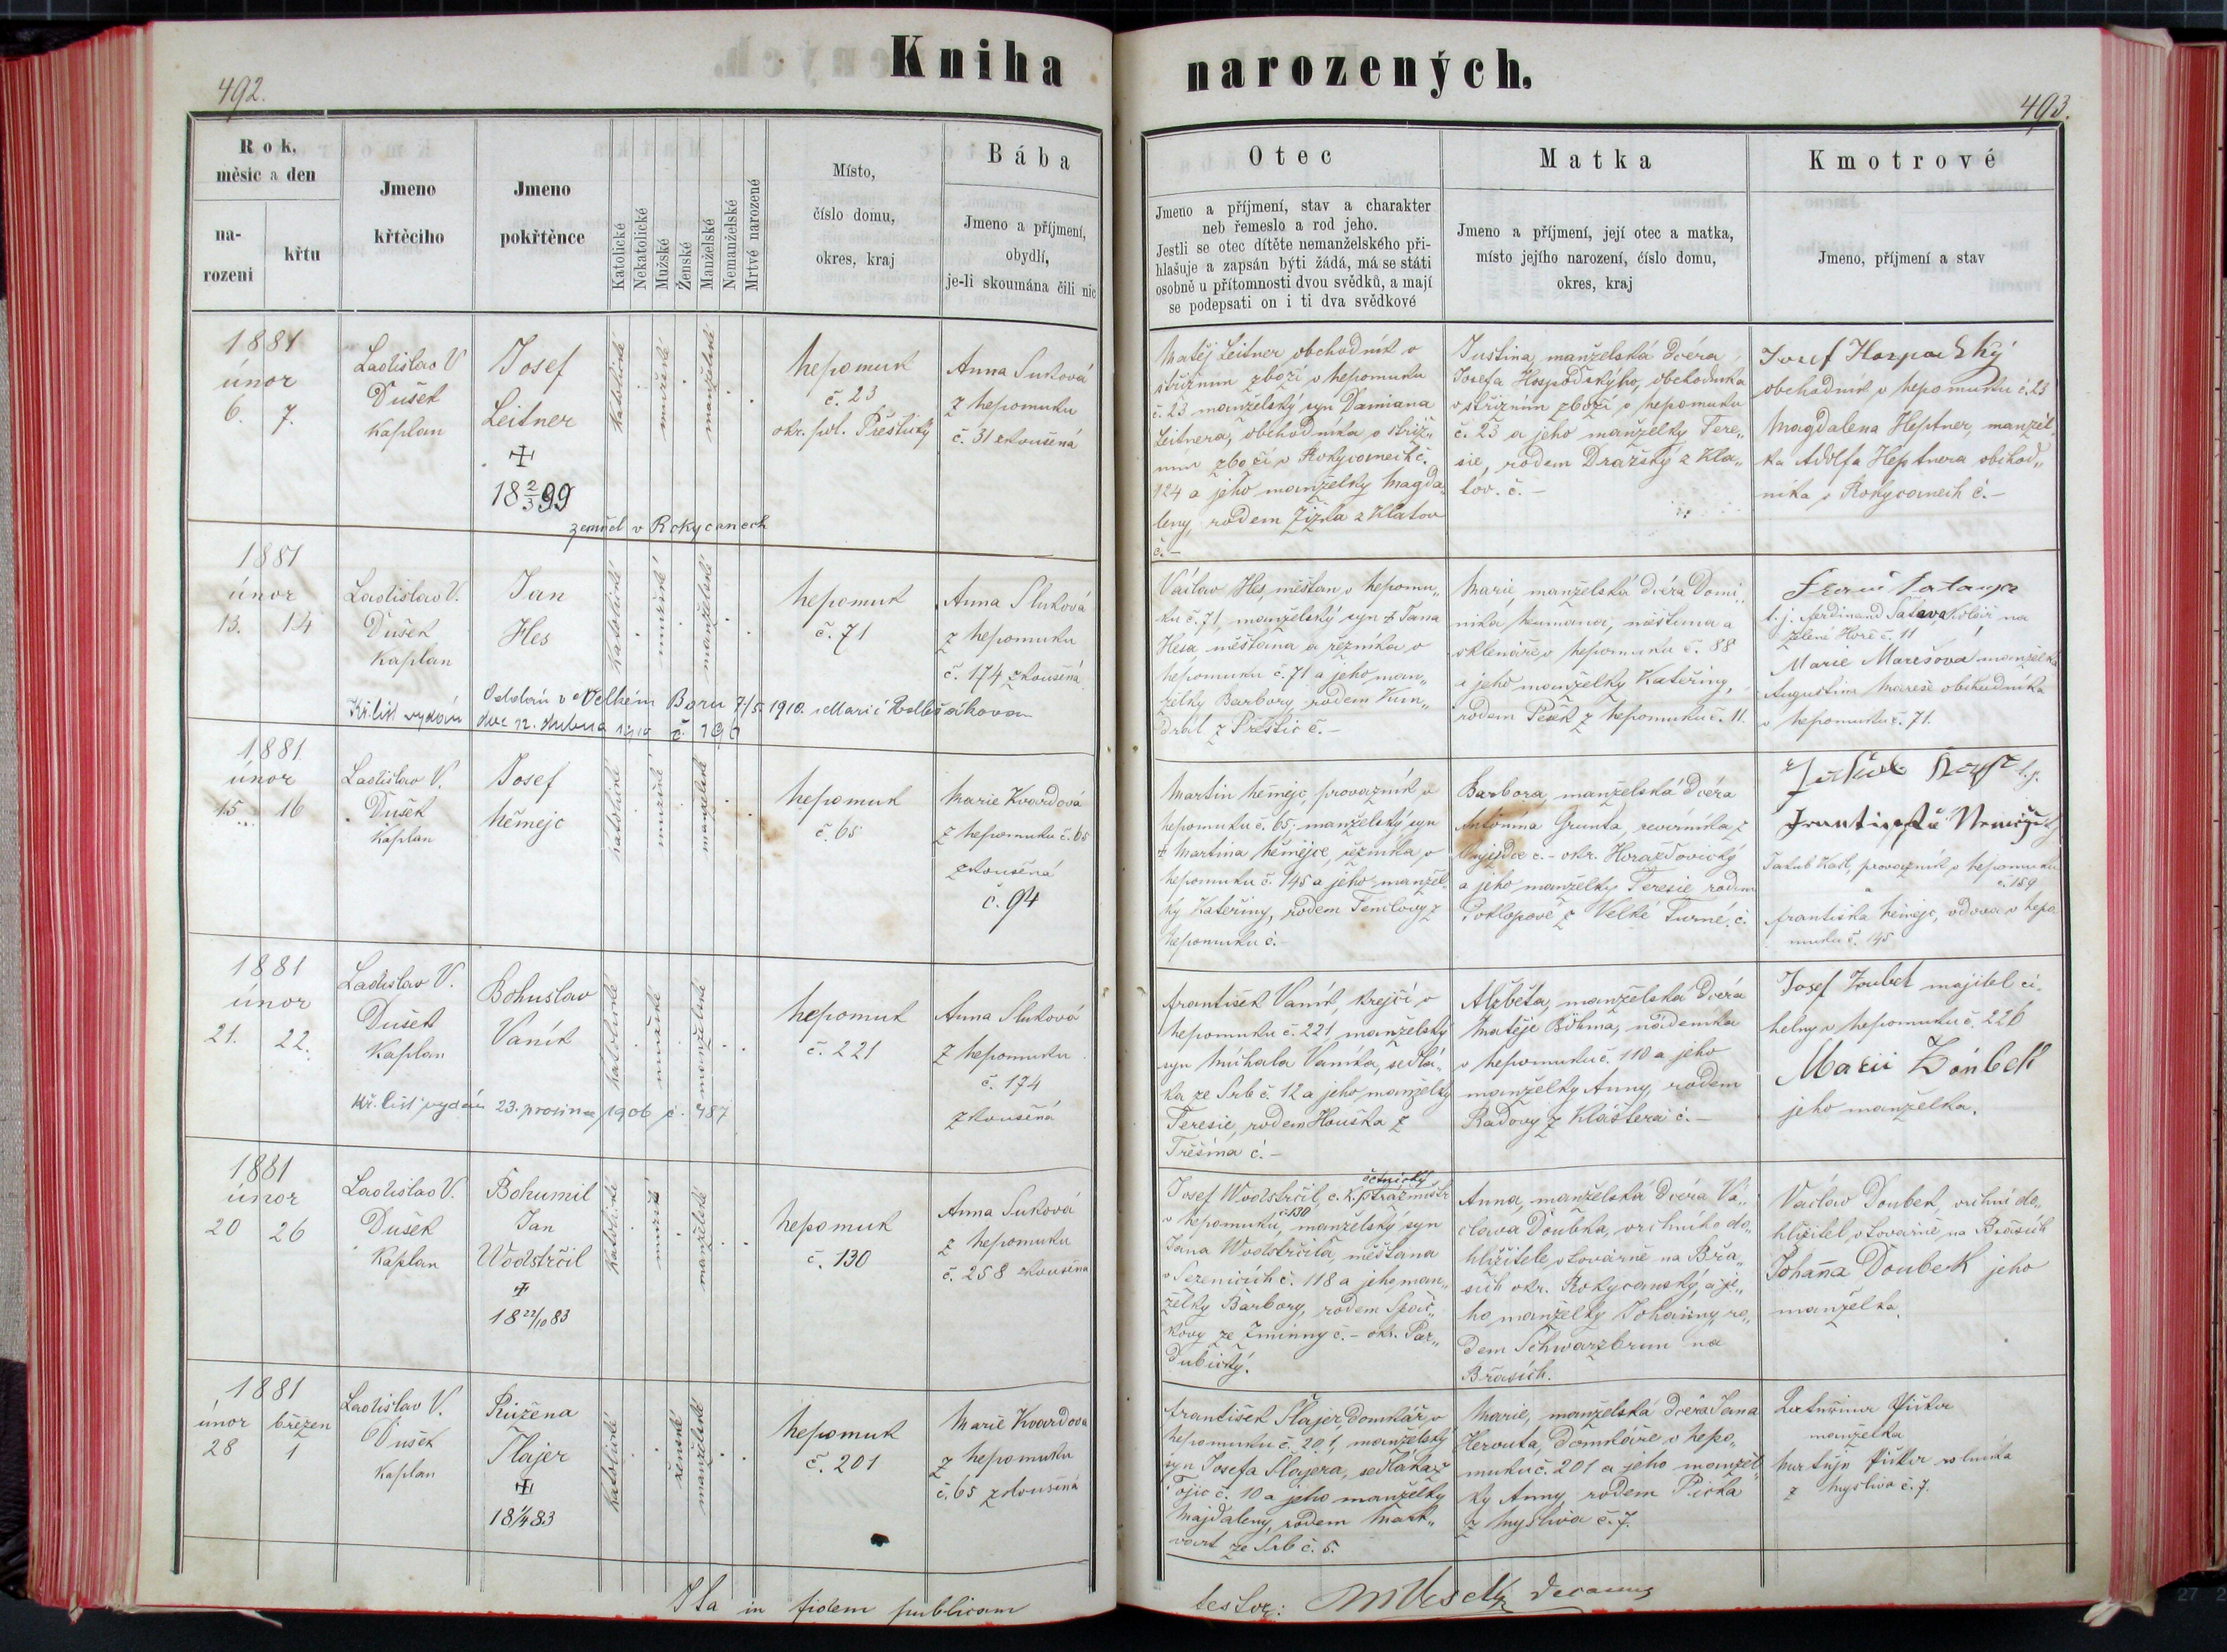 Kniha
narozených.
492.
493.
Rok,
měsíc a den
na-
rozeni
křtu
Jmeno
křtěcího
Jmeno
pokřtěnce
Katolické
Nekatolické
Mužské
Ženské
Manželské
Nemanželské
Mrtvé narozené
Místo,
číslo domu,
okres, kraj
Bába
Jmeno a příjmení,
obydlí,
je-li skoumána čili nic
Otec
Jmeno a příjmení, stav a charakter
neb řemeslo a rod jeho.
Jestli se otec dítěte nemanželského při-
hlašuje a zapsán býti žádá, má se státi
osobně u přítomnosti dvou svědků, a mají
se podepsati on i ti dva svědkové
Matka
Jmeno a příjmení, její otec a matka,
místo jejího narození, číslo domu,
okres, kraj
Kmotrové
Jmeno, příjmení a stav
1881
únor
6. 7.
Ladislav V
Dušek
Kaplan
Josef
Leitner
18 2/3 99
zemřel v Rokycanech
katolické
mužské
manželské
Nepomuk
č. 23
okr. pol. Přeštický
Anna Suková
z Nepomuku
č. 31 zkoušená
Matěj Leitner obchodník v
střižním zboží v Nepomuku
č. 23 manželský syn Damiana
Leitnera, obchodníka v střiž„
ním zboží v Rokycanech č.
124 a jeho manželky Magda„
leny, rodem Žižka z Klatov
č. –
Justina, manželská dcéra
Josefa Hospodskýho, obchodníka
v střižním zboží v Nepomuku
č. 23 a jeho manželky Tere„
sie, rodem Dražský z Kla„
tov. č. –
Josef Hospodský
obchodník v Nepomuku č. 23
Magdalena Heptner, manžel„
ka Adolfa Heptnera obchod„
níka v Rokycanech č. –
1881
únor
13. 14
Ladislav V.
Dušek
Kaplan
Jan
Hes
Kř. list vydán
Oddán v Velkém Boru 7/5 1910. s Marií
dne 12. dubna 1910
katolické
mužské
manželské
Nepomuk
č. 71
Anna Sluková
z Nepomuku
č. 174 zkoušená
Václav Hes, měšťan v Nepomu„
ku č. 71, manželský syn † Jana
Hesa měšťana a řezníka v
Nepomuku č. 71 a jeho man„
želky Barbory, rodem Kun„
drát z Přeštic č. –
Marie, manželská dcéra Domi„
nika Neumana, měšťana a
sklenáře v Nepomuku č. 88
a jeho manželky Kateřiny,
rodem Pešek z Nepomuku č. 11.
t. j. Ferdinand Satava Kolář na
zelené Hoře č. 11
Marie Marešova manželka
Augustina Mareše obchodníka
v Nepomuku č. 71.
1881
únor
15. 16
Ladislav V.
Dušek
Kaplan
Josef
Němejc
katolické
mužské
manželské
Nepomuk
č. 65
Marie Kvardová
z Nepomuku č. 65
zkoušená
č. 94
Martin Němejc, provazník v
Nepomuku č. 65, manželský syn
† Martina Němejce, řezníka v
Nepomuku č. 145 a jeho manžel„
ky Kateřiny, rodem Tenclovy z
Nepomuku č. –
Barbora, manželská dcéra
Antonína Grunta, revírníka z
č. – okr. Horažďovický
a jeho manželky Teresie rodem
Poklopové z Velké Turné. č.
provazník v Nepomuku
č. 159
a
Františka Němejc, vdova v Nepo
muku č. 145
1881
únor
21. 22.
Ladislav V.
Dušek
Kaplan
Bohuslav
Vaník
Kř. list vydán 23. prosince 1906 č. 487
katolické
mužské
manželské
Nepomuk
č. 221
Anna Sluková
z Nepomuku
č. 174
zkoušená
František Vaník, krejčí v
Nepomuku č. 221, manželský
syn Michala Vaníka, sedlá„
ka ze Srb č. 12 a jeho manželky
Teresie, rodem Houška z
Třešína č. –
Alžběta, manželská dcéra
Matěje Böhma, nádeníka
v Nepomuku č. 110 a jeho
manželky Anny, rodem
Radovy z Kláštera č. –
Josef Zoubek majitel ci„
helny v Nepomuku č. 226
Marie Zoubek
jeho manželka.
1881
únor
20 26
Ladislav V.
Dušek
Kaplan
Bohumil
Jan
Wodstrčil
18 22/10 83
katolické
mužské
manželské
Nepomuk
č. 130
Anna Suková
z Nepomuku
č. 258 zkoušena
četnický
Josef Wodstrčil, c. k. strážmistr
v Nepomuku, č 130 manželský syn
Jana Wodstrčila, měšťana
v Sezemicích č. 118 a jeho man„
želky Barbory, rodem Špač„
kovy ze Zminny č. – okr. Par„
dubický.
Anna, manželská dcéra Vá„
clava Doubka, vrchního do„
hlížitele v továrně na Břa„
sích okr. Rokycanský, a je„
ho manželky Johanny, ro„
dem Schwarzbrun na
Břasích.
Václav Doubek, vrchní do„
hlížitel v továrně na Břasích
Johana Doubek jeho
manželka.
1881
únor březen
28 1
Ladislav V.
Dušek
Kaplan
Růžena
Šlajer
18 1/4 83
katolické
ženské
manželské
Nepomuk
č. 201
Marie Kvardova
z Nepomuku
č. 65 zkoušená
František Šlajer, domkář v
Nepomuku č. 201, manželský
syn Josefa Šlajera, sedláka z
Tojic č. 10 a jeho manželky
Majdaleny, rodem Mark„
vart ze Srb č. 5.
Marie, manželská dcéra Jana
Herouta, domkáře v Nepo„
muku č. 201 a jeho manžel„
ky Anny, rodem Picka
z Myslívа č. 7.
manželka
z Myslíva č. 7.
Ita in fidem publicam
testor: decanus